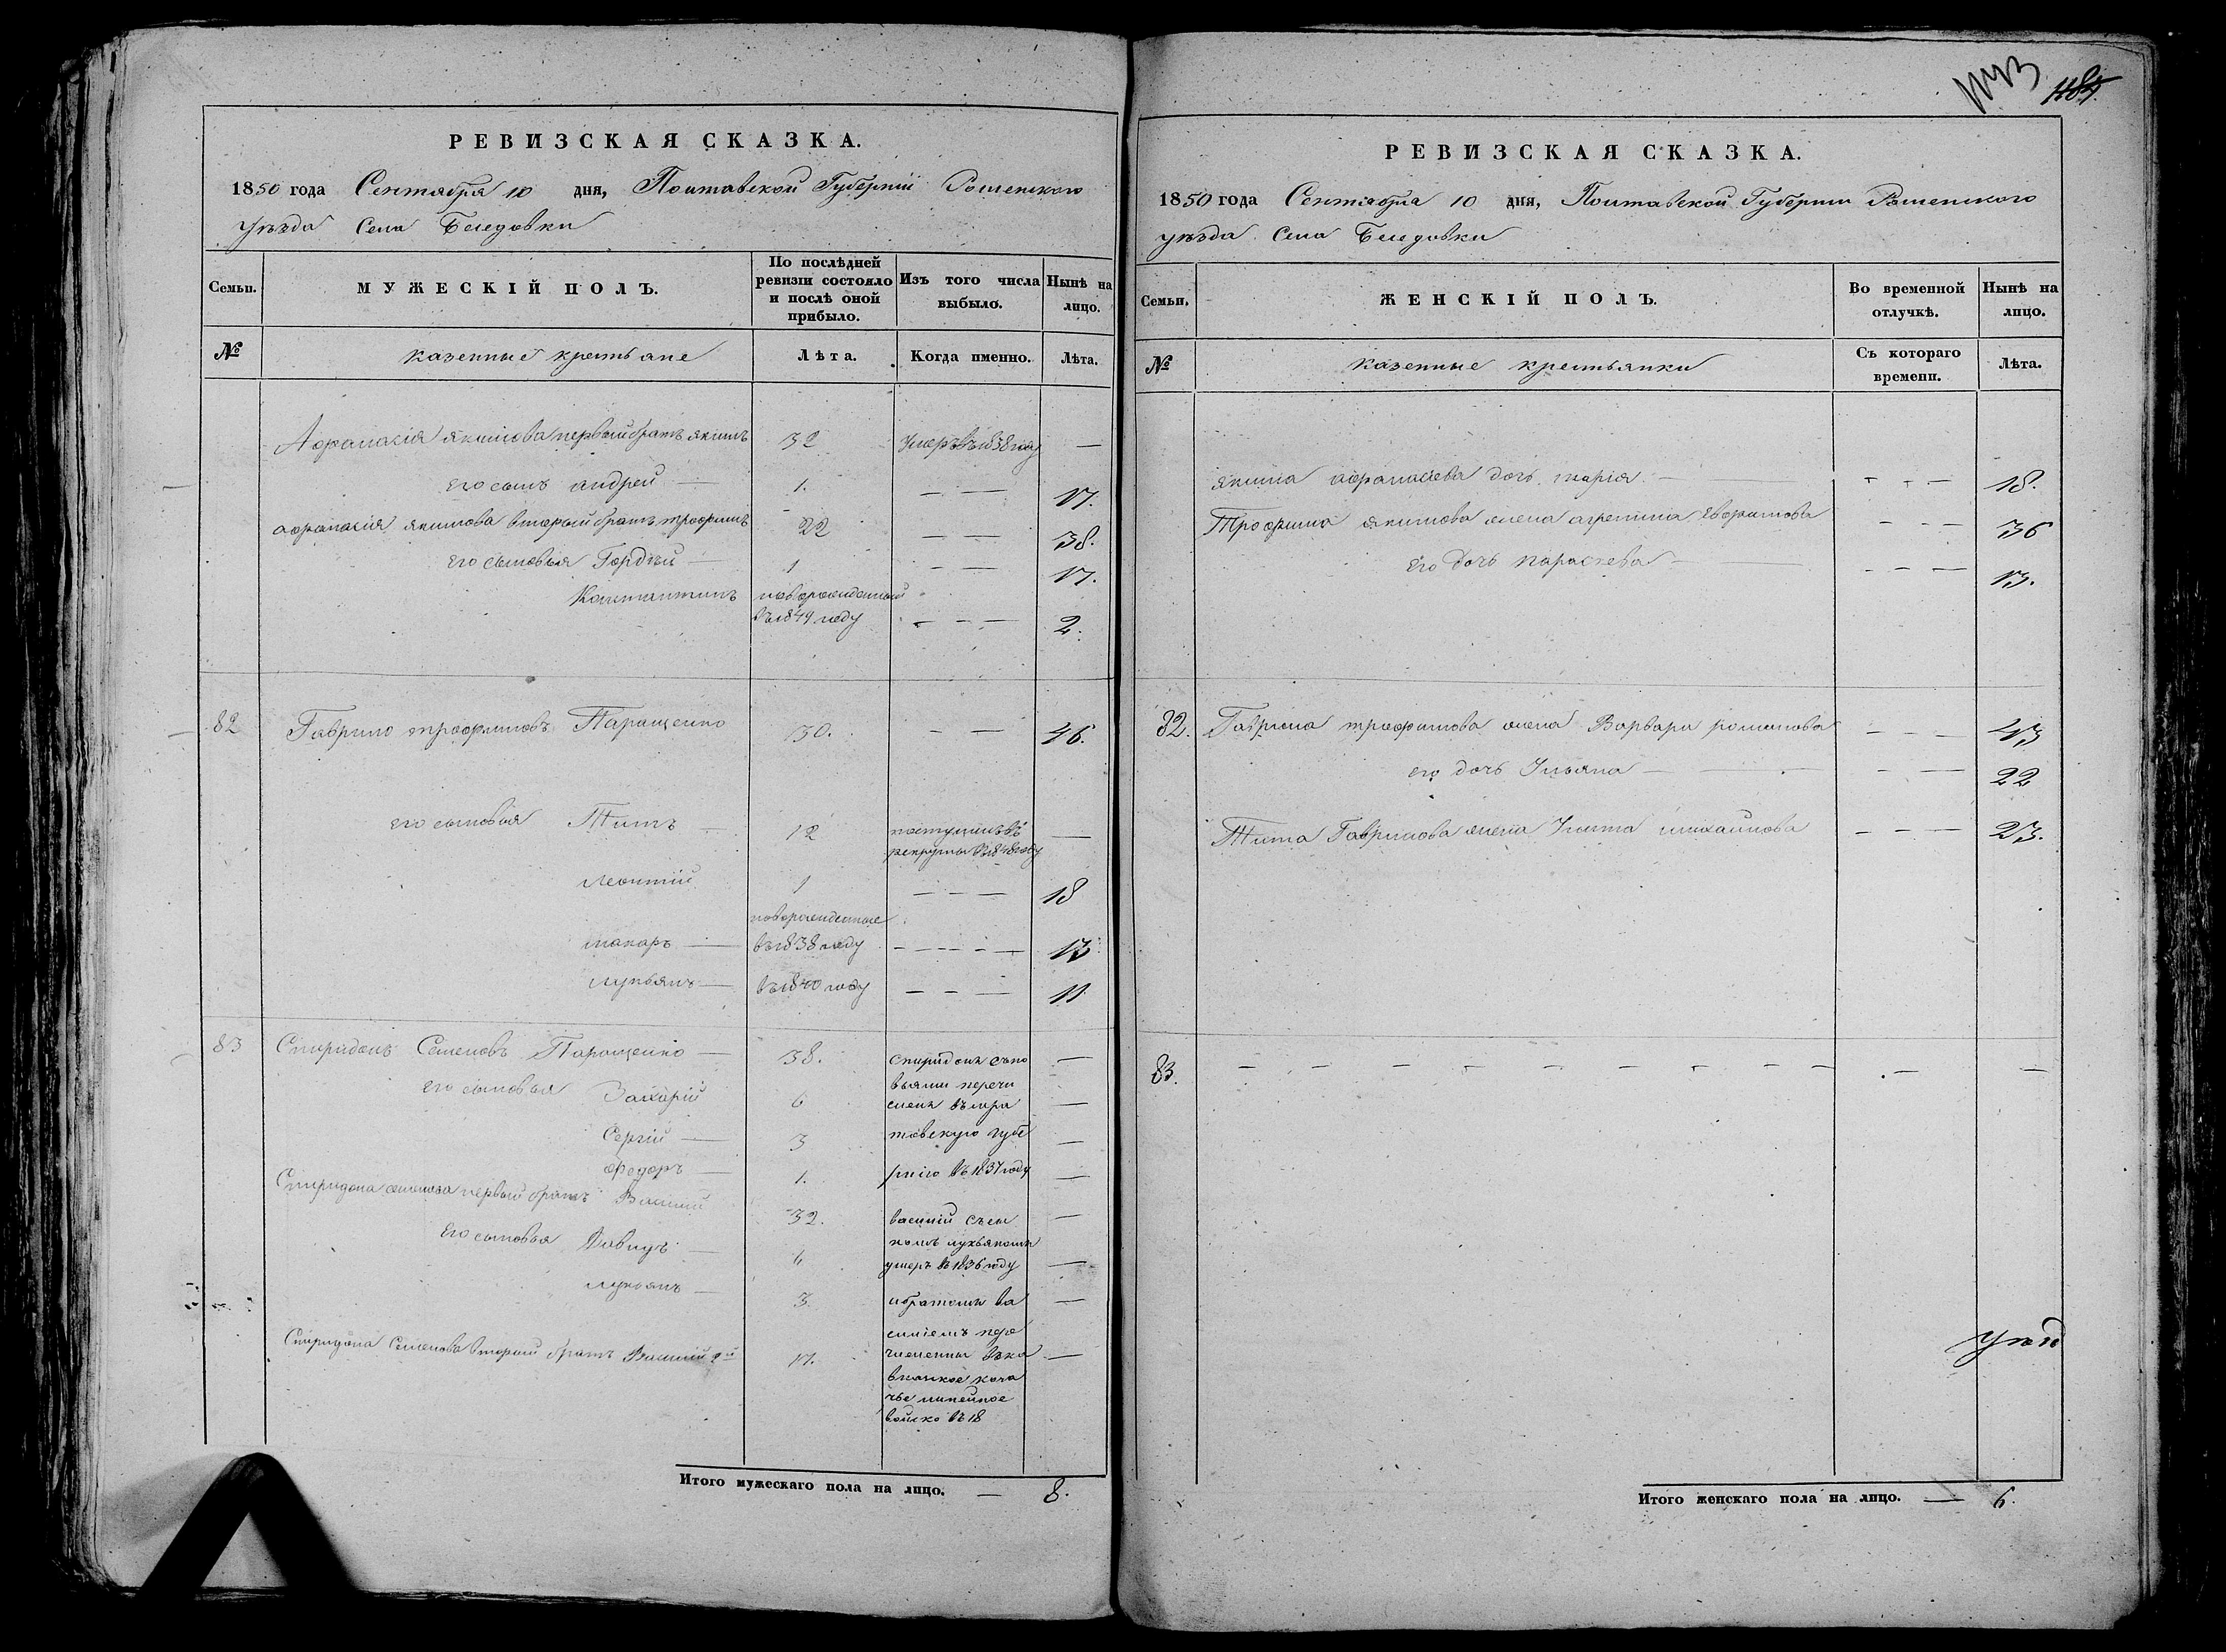 РЕВИЗСКАЯ СКАЗКА.
1850 года Сентября 10 дня, Полтавской Губернии Роменского
уѣзда Села Беседовки
Семьи.
МУЖЕСКІЙ ПОЛЪ.
По послѣдней ревизіи состояло и послѣ оной прибыло.
Изъ того числа выбыло.
Нынѣ на лицо.
№ казенные крестьяне Лѣта. Когда именно. Лѣта.
Афанасія Якимова первый братъ Якимъ 32 Умеръ въ 1838 году —
его сынъ андрей — 1. — — 17.
афанасія якимова вторый братъ трофимъ 22 — — 38.
его сыновья Гордѣй — 1 — — 17.
Константинъ новорожденный
въ 1849 году — — — 2.
82 Гаврило трофимовъ Паращенко 30. — — 46.
его сыновья Титъ — 12 поступилъ въ —
рекруты въ 1848 году
леонтій 1 — — — 18
новорожденные
макаръ — въ 1838 году — — — — 13
лукьянъ — въ 1840 году — — — 11
83 Спиридонъ Семеновъ Паращенко — 38. спиридонъ съно —
вьями перечи
его сыновья Захарій 6 сленъ въ сара —
Сергій — 3 товскую губе —
федоръ — 1. рнію въ 1837 году —
Спиридона семенова первый братъ Василій 32. василій съ сы —
номъ лукьяномъ
его сыновья Давидъ 6 умеръ въ 1836 году —
лукьянъ — 3. и братомъ ва —
силіемъ пере
Спиридона Семенова вторый братъ Василій 2й 17. численны въ ка —
вказкое каза
чье линейное
войско въ 18
Итого мужескаго пола на лицо. — 8.
1185.
РЕВИЗСКАЯ СКАЗКА.
1850 года Сентября 10 дня, Полтавской Губернии Роменского
уѣзда Села Беседовки
Семьи,
ЖЕНСКІЙ ПОЛЪ.
Во временной отлучкѣ.
Нынѣ на лицо.
№ казенные крестьянки Съ котораго времени. Лѣта.
якима афанасіева дочь марія — — — — 18.
Трофима якимова жена агрепина Евфимова — — — 36
его дочь параскева — — — — 13.
82. Гаврила трофимова жена Варвара романова — — — 43
его дочь Ульяна — — — 22
Тита Гаврилова жена Улита михайлова — — — 23.
83. — — — — — — — — — — —
Итого женскаго пола на лицо. — 6.